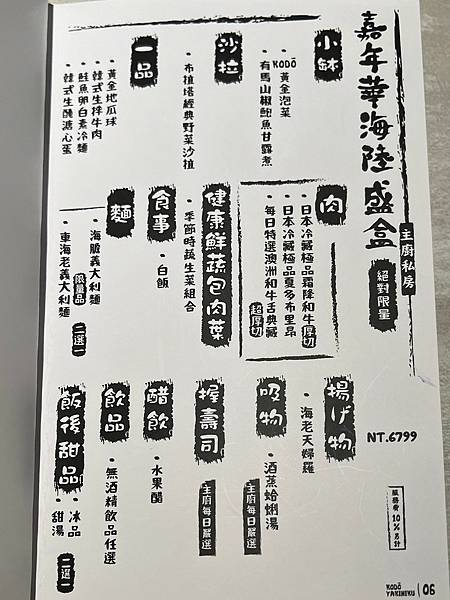 嘉年華海陸盛盒
主廚私房
絕對限量
小鉢
・KODŌ黃金泡菜
・有馬山椒鮑魚甘露煮
沙拉
・布拉塔經典野菜沙拉
一品
・黃金地瓜球
・韓式生拌牛肉
・鮭魚卵白素冷麵
・韓式生醃溏心蛋
肉
・日本冷藏極品霜降和牛厚切
・日本冷藏極品夏多布里昂
・每日特選澳洲和牛舌典藏
超厚切
健康鮮蔬包肉葉
・季節時蔬生菜組合
食事
・白飯
麵
・海膽義大利麵
限量品
・車海老義大利麵
二選一
揚げ物
・海老天婦羅
吸物
・酒蒸蛤蜊湯
主廚每日嚴選
握壽司
主廚每日嚴選
醋飲
・水果醋
飲品
・無酒精飲品任選
飯後甜品
・冰品
・甜湯
二選一
NT.6799
服務費10%另計
KODŌ
YAKINIKU
06